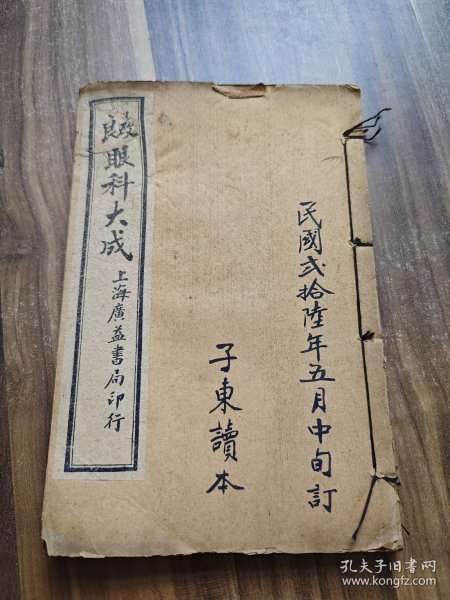 民國弍拾陸年五月中旬訂
子東讀本
改良眼科大成
上海廣益書局印行
孔夫子旧书网
www.kongfz.com